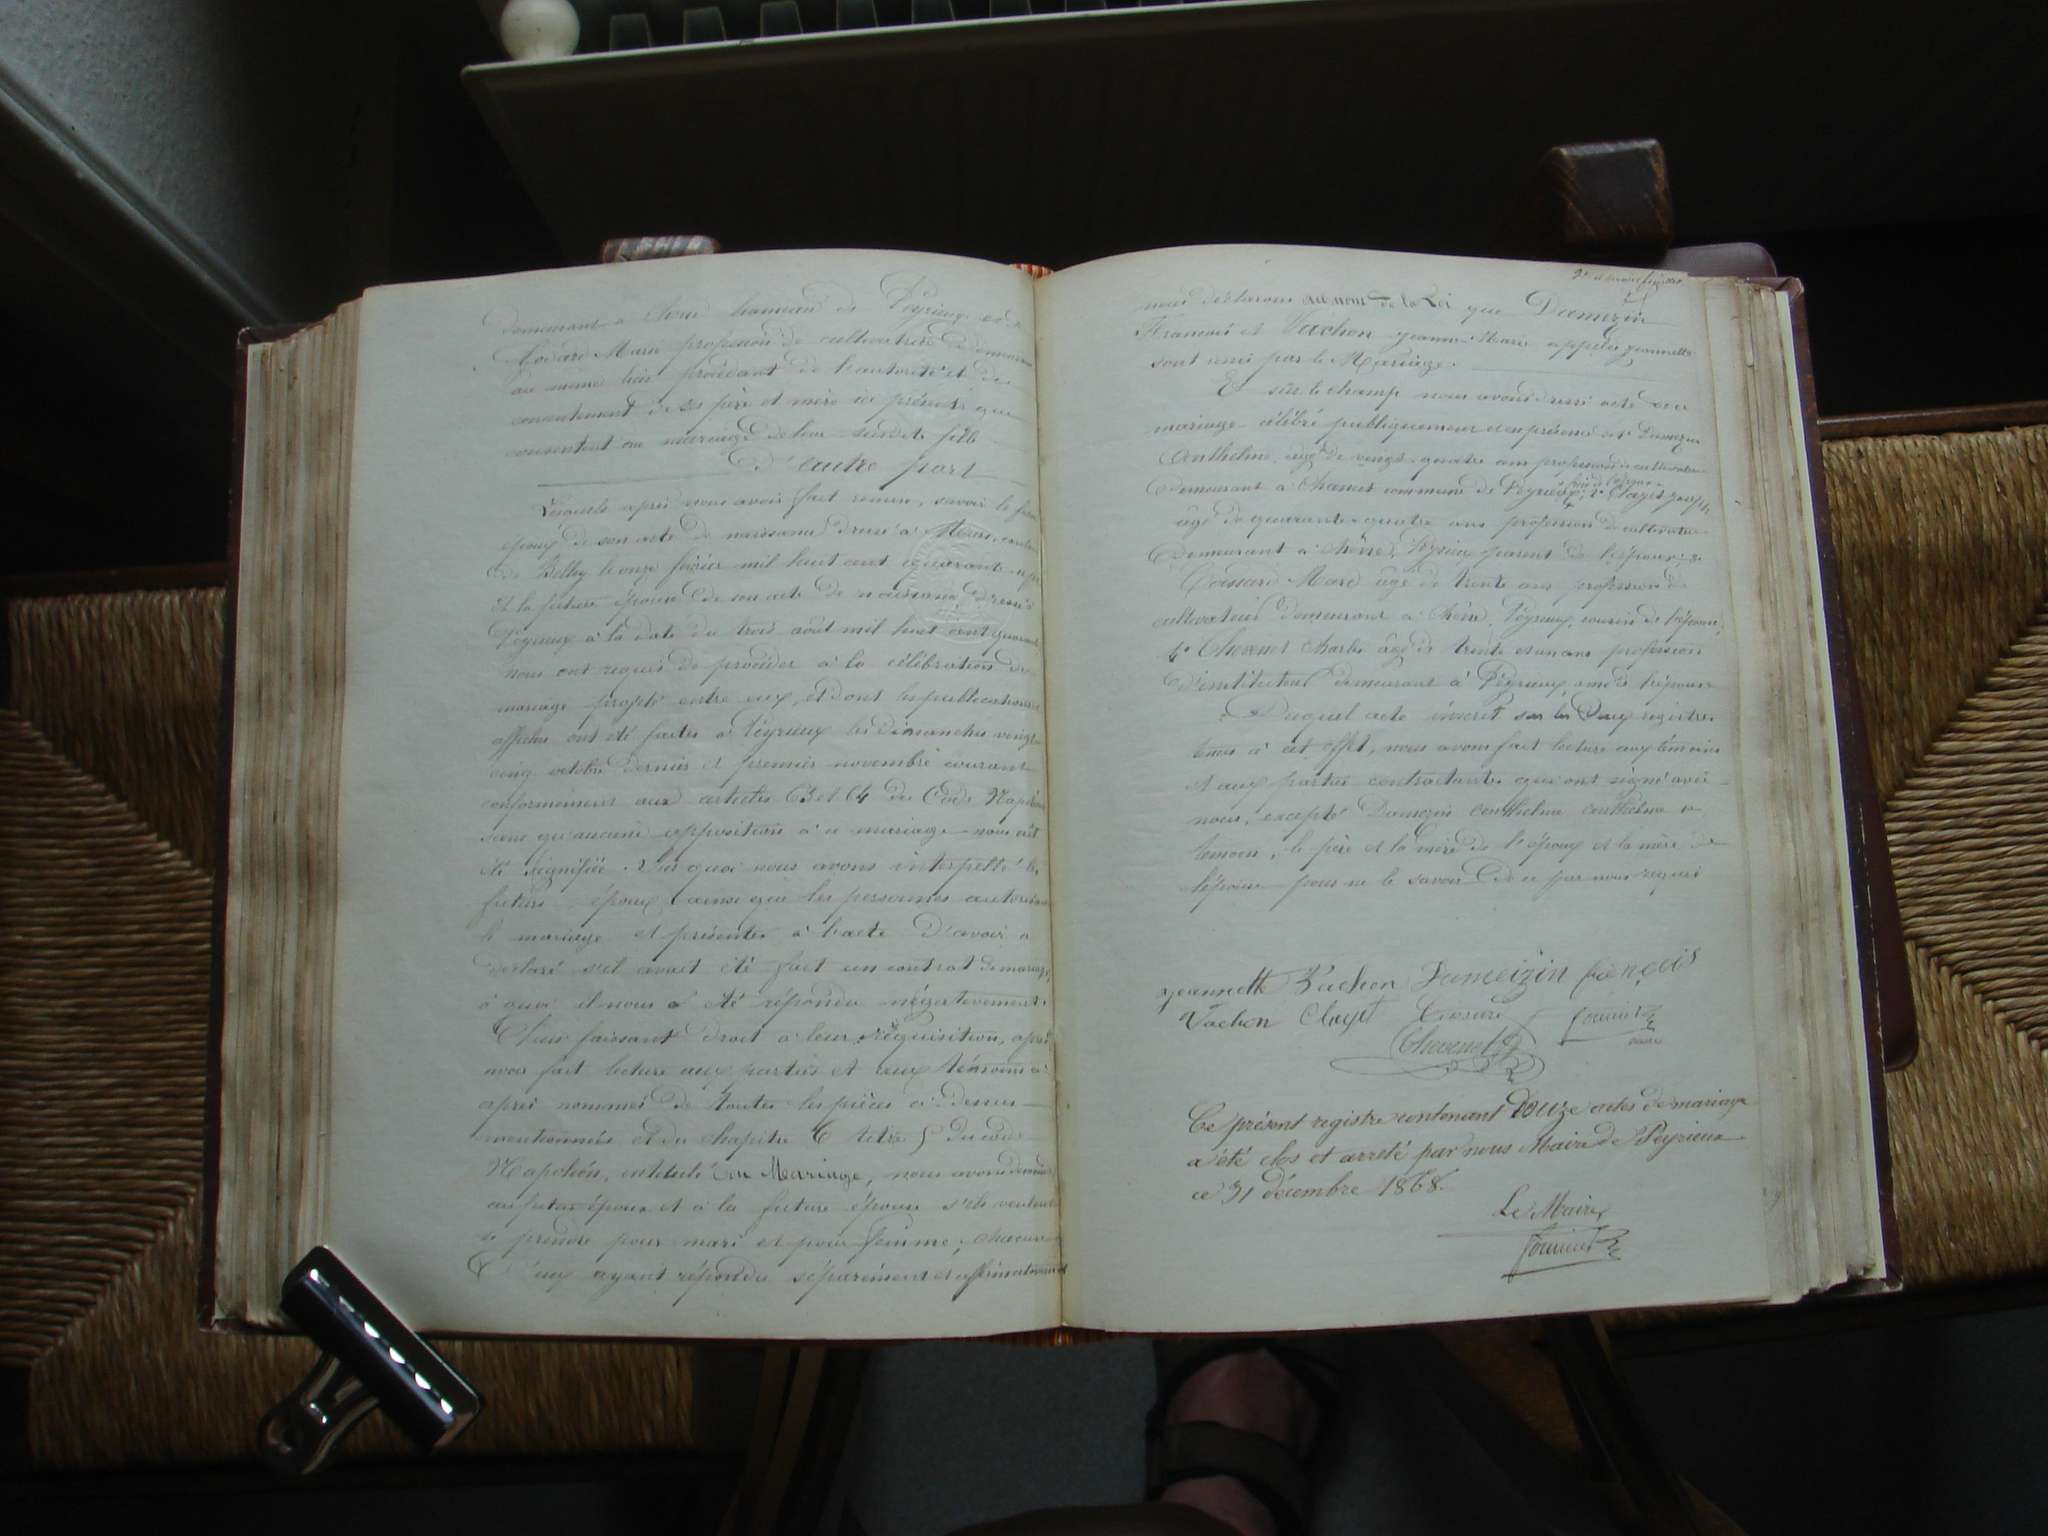 demeurant à Chêne hameau de Peyrieux et de
Coisard Marie profession de cultivatrice demeurant
au même lieu procédant de l'autorité et du
consentement de ses père et mère ici présents qui
consentent au mariage de leur susdite fille
D'autre part
Lesquels après nous avoir fait remise, savoir le futur
époux de son acte de naissance dressé à
de Belley le onze février mil huit cent quarante
et la future épouse de son acte de naissance dressé à
Peyrieux à la date du trois août mil huit cent quarante
nous ont requis de procéder à la célébration du
mariage projeté entre eux, et dont les publications
affiches ont été faites à Peyrieux les dimanches vingt
cinq octobre dernier et premier novembre courant
conformément aux articles 63 et 64 du Code Napoléon
sans qu'aucune opposition à ce mariage nous ait
été signifiée. Sur quoi nous avons interpellé les
futurs époux ainsi que les personnes autorisant
le mariage et présentes à l'acte d'avoir à
déclaré s'il avait été fait un contrat de mariage,
à quoi il nous a été répondu négativement.
Puis faisant droit à leur réquisition, après
avoir fait lecture aux parties et aux témoins ci-
après nommés de toutes les pièces ci-dessus
mentionnées et du chapitre 6 titre 5 du code
Napoléon, intitulé du Mariage, nous avons demandé
au futur époux et à la future épouse s'ils veulent
se prendre pour mari et pour femme; chacun
d'eux ayant répondu séparément et affirmativement
nous déclarons au nom de la Loi que Damezin
François et Vachon Jeanne-Marie appelée Jeannette
sont unis par le Mariage.
Et sur le champ nous avons dressé acte de ce
mariage célébré publiquement et en présence de 1° Damezin
Anthelme, âgé de vingt-quatre ans profession de cultivateur
demeurant à commune de Peyrieux, 2° Clayet Joseph,
âgé de quarante-quatre ans profession de cultivateur
demeurant à Chêne, Peyrieux parent de l'époux; 3°
Coissard Marc âgé de trente ans profession de
cultivateur demeurant à Chêne, Peyrieux, cousin de l'épouse,
4° Chevenet Charles âgé de trente et un ans profession
d'instituteur demeurant à Peyrieux, ami de l'épouse
Duquel acte inscrit sur les deux registres
tenus à cet effet, nous avons fait lecture aux témoins
et aux parties contractantes qui ont signé avec
nous, excepté Damezin Anthelme
témoin, le père et la mère de l'époux et la mère de
l'épouse pour ne le savoir de ce par nous requis
Jeannette Vachon Dameizin françois
Vachon Clayet Coissard
Chevenet
maire
Ce présent registre contenant Douze actes de mariage
a été clos et arrêté par nous Maire de Peyrieux
ce 31 décembre 1868.
Le Maire